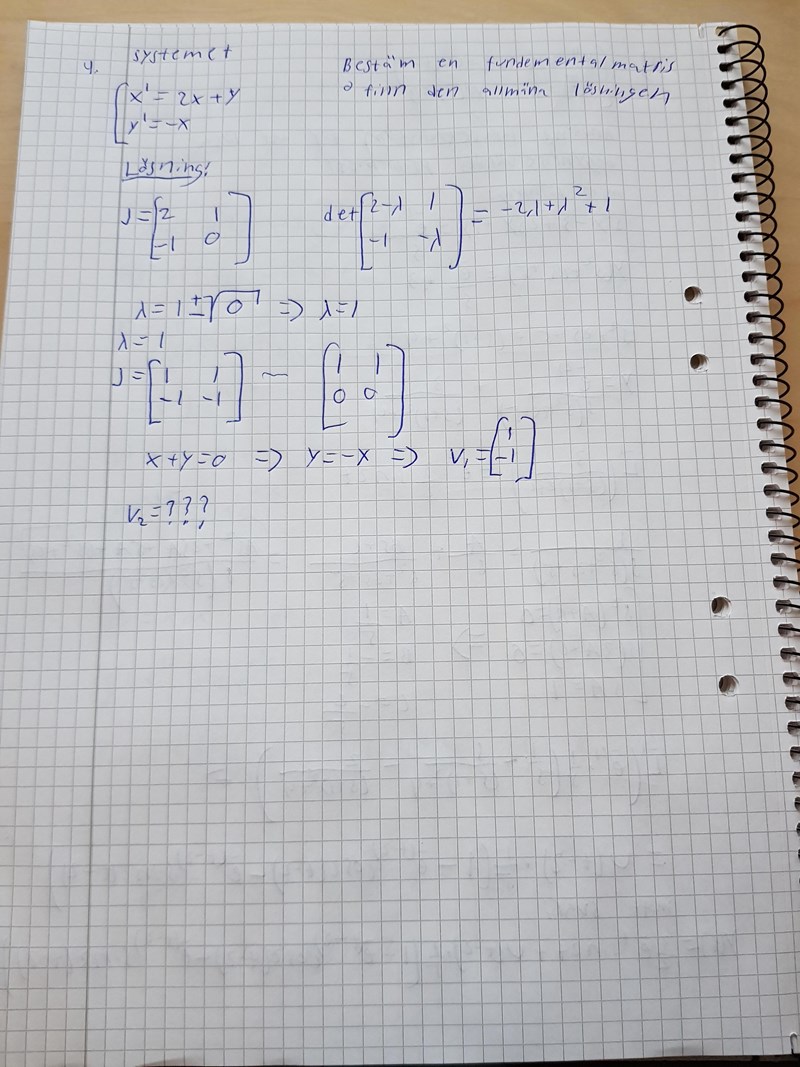 4. systemet
{ x' = 2x + y
y' = -x
Bestäm en fundemental matris
o finn den allmäna lösningen
Lösning:
J = [2 1
-1 0]
det [2-λ 1
-1 -λ] = -2λ+λ²+1
λ = 1 ± √0 => λ=1
λ = 1
J = [1 1
-1 -1] ~ [1 1
0 0]
x+y=0 => y=-x => V₁ = [1
-1]
V₂ = ???